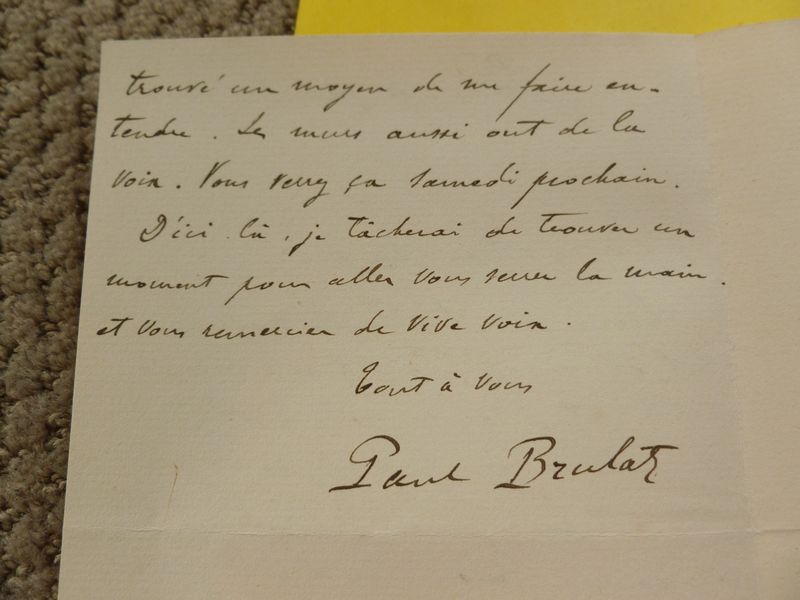 trouvé un moyen de me faire en-
tendre. Les murs aussi ont de la
voix. Vous verrez ça samedi prochain.
D'ici là, je tâcherai de trouver un
moment pour aller vous serrer la main.
et vous remercier de vive voix.
Tout à vous
Paul Brulat